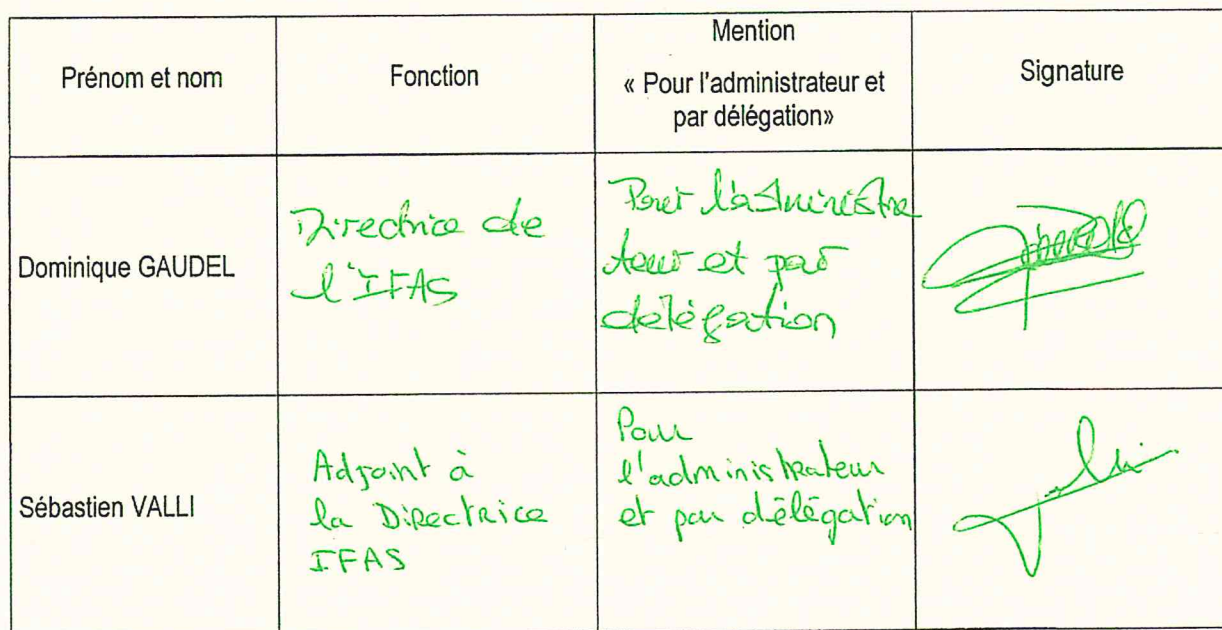 Prénom et nom
Fonction
Mention
« Pour l'administrateur et
par délégation»
Signature
Dominique GAUDEL
Directrice de
l'IFAS
Pour l'administra
teur et par
délégation
Sébastien VALLI
Adjoint à
la Directrice
IFAS
Pour
l'administrateur
et par délégation